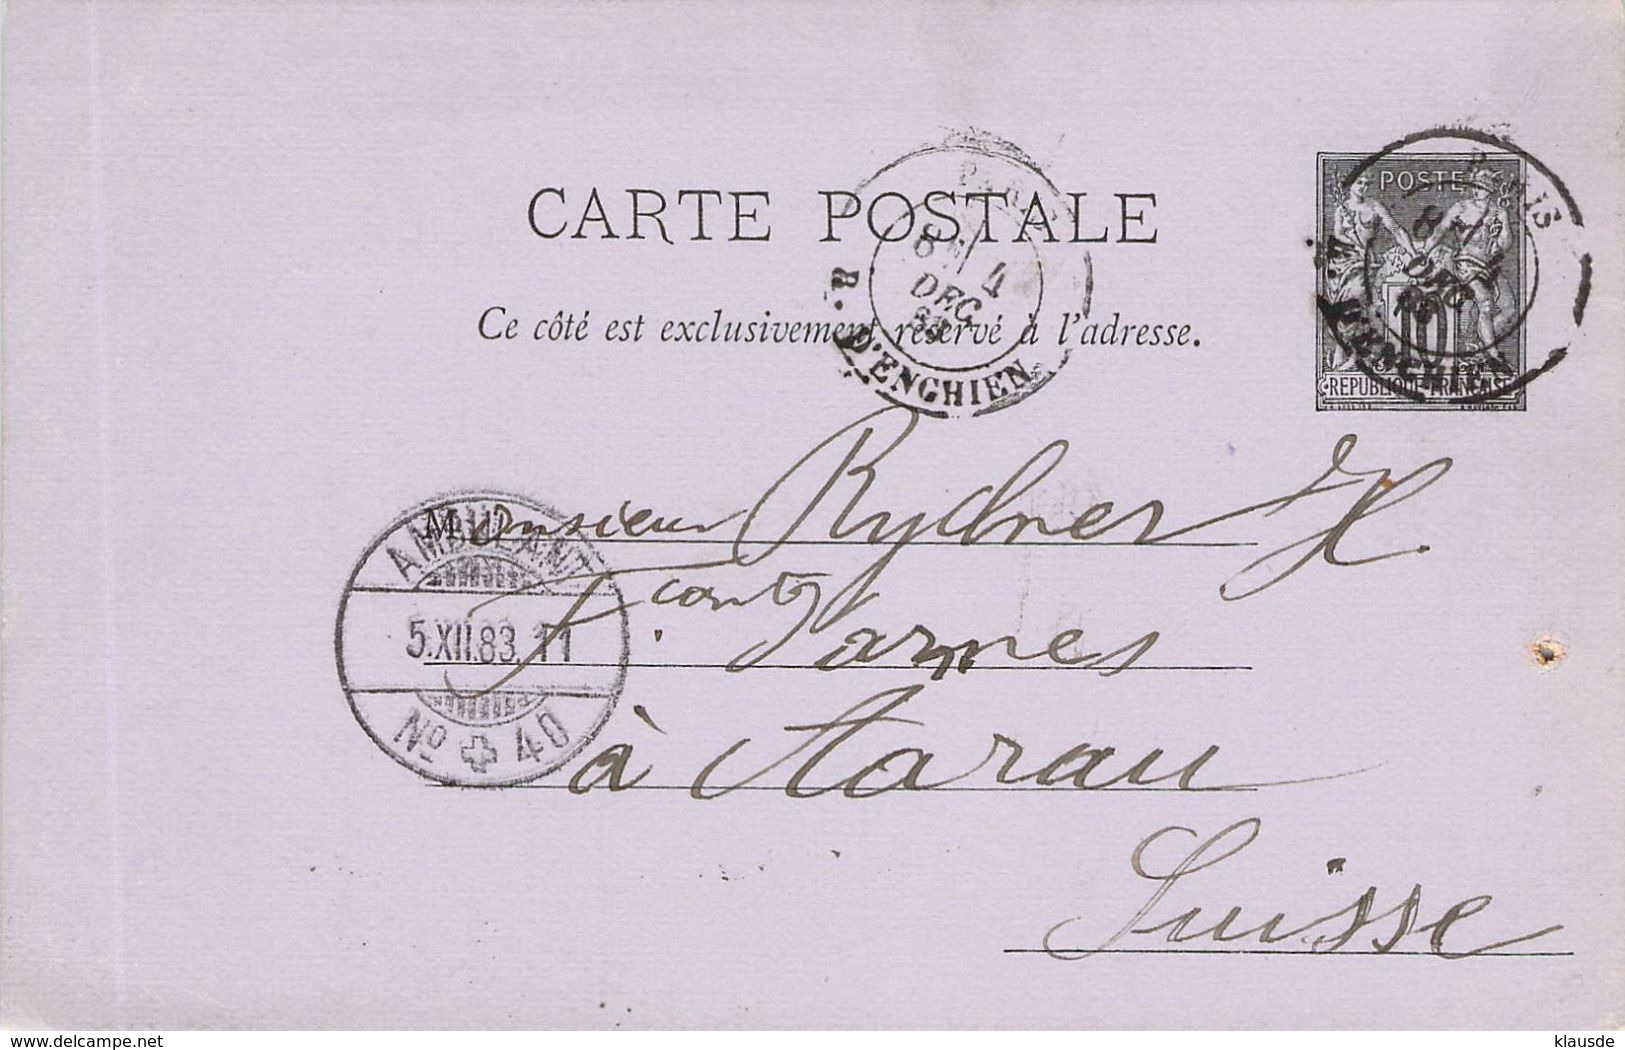 CARTE POSTALE
Ce côté est exclusivement réservé à l'adresse.
PARIS
8E/ 4
DEC
83
R. D'ENGHIEN
POSTE
10
REPUBLIQUE FRANÇAISE
PARIS
8E/ 4
DEC
83
R. D'ENGHIEN
Monsieur Rydner H.
AMBULANT
5.XII.83.11
No 40
à Aarau
Suisse
delcampe.net
klausde